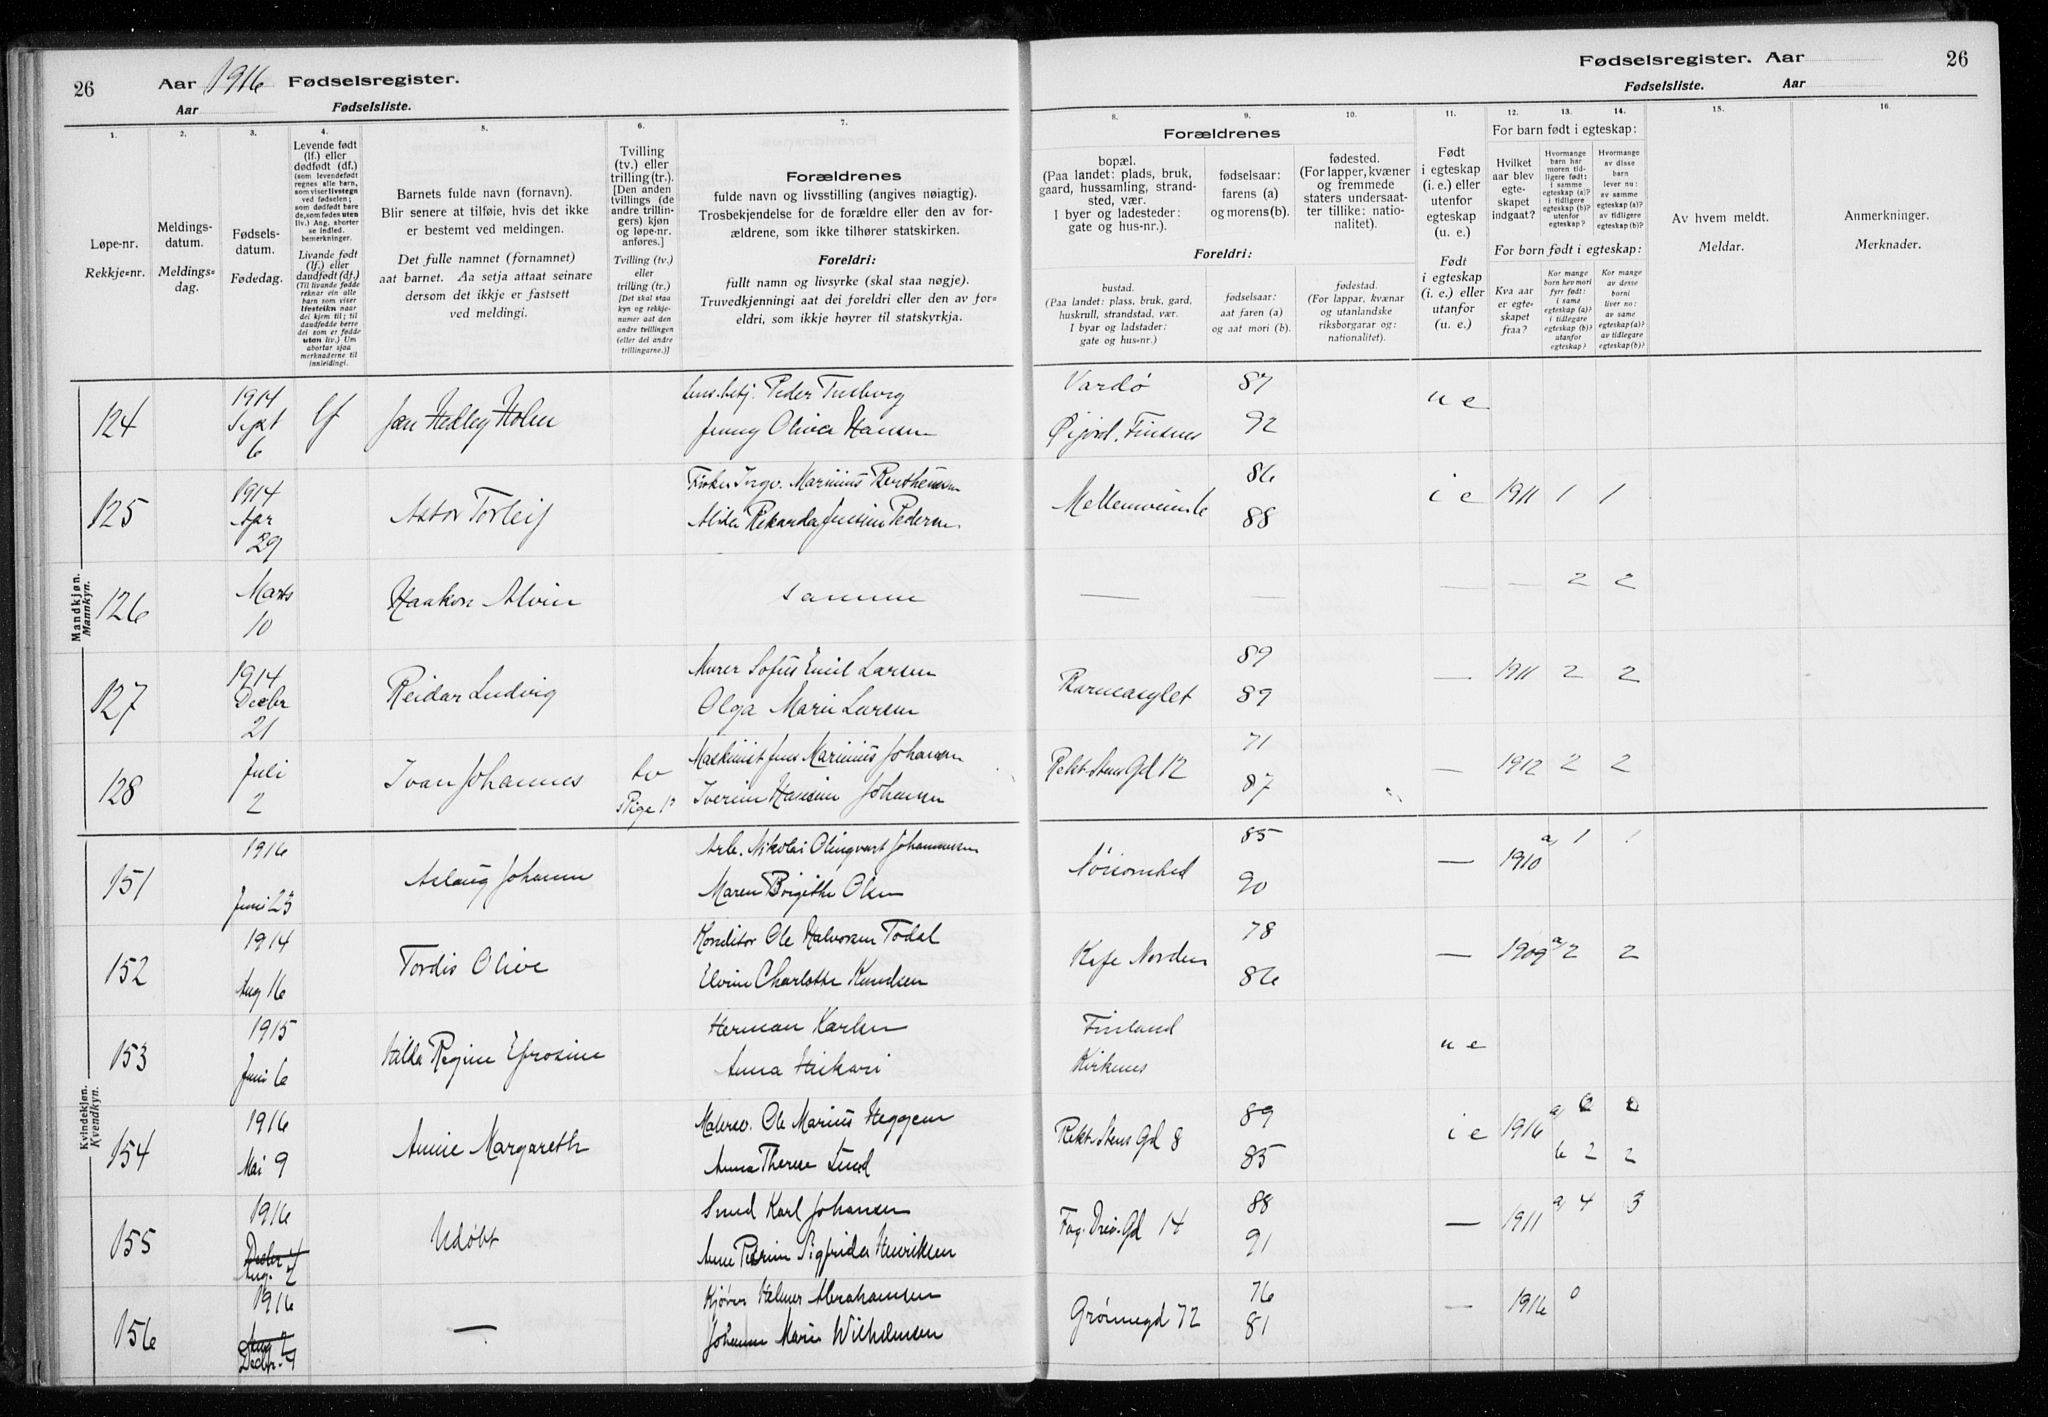 26 Aar 1916 Fødselsregister.
Aar Fødselsliste.
Fødselsregister. Aar 26
Fødselsliste. Aar
1. 2. 3. 4. 5. 6. 7. 8. 9. 10. 11. 12. 13. 14. 15. 16.
Løpe-nr.
Rekkje=nr.
Meldings-
datum.
Meldings=
dag.
Fødsels-
datum.
Fødedag.
Levende født
(lf.) eller
dødfødt (df.)
(som levendefødt
regnes alle barn,
som viser livstegn
ved fødselen;
som dødfødt bare
de, som fødes uten
liv.) Ang. aborter
se indled.
bemerkninger.
Livande født
(lf.) eller
daudfødt (df.)
(Til livande fødde
reknar ein alle
barn som viser
livsteikn naar
dei kjem til; til
daudfødde berre
dei som er fødde
utan liv.) Um
abortar sjaa
merknaderne til
innleidingi.
Barnets fulde navn (fornavn).
Blir senere at tilføie, hvis det ikke
er bestemt ved meldingen.
Det fulle namnet (fornamnet)
aat barnet. Aa setja attaat seinare
dersom det ikkje er fastsett
ved meldingi.
Tvilling
(tv.) eller
trilling (tr.).
[Den anden
tvillings (de
andre trillin-
gers) kjøn
og løpe-nr.
anføres.]
Tvilling (tv.)
eller
trilling (tr.)
[Det skal staa
kyn og rekkje-
numer aat den
andre tvillingen
(eller dei andre
trillingarne.)]
Forældrenes
fulde navn og livsstilling (angives nøiagtig).
Trosbekjendelse for de forældre eller den av for-
ældrene, som ikke tilhører statskirken.
Foreldri:
fullt namn og livsyrke (skal staa nøgje).
Truvedkjenningi aat dei foreldri eller den av for=
eldri, som ikkje høyrer til statskyrkja.
Forældrenes
bopæl.
(Paa landet: plads, bruk,
gaard, hussamling, strand-
sted, vær.
I byer og ladesteder:
gate og hus-nr.).
fødselsaar:
farens (a)
og morens(b).
fødested.
(For lapper, kvæner
og fremmede
staters undersaat-
ter tillike: natio-
nalitet).
Foreldri:
bustad.
(Paa landet: plass, bruk, gard,
huskrull, strandstad, vær.
I byar og ladstader:
gate og hus=nr.)
fødselsaar:
aat faren (a)
og aat mori (b).
fødestad.
(For lappar, kvænar
og utanlandske
riksborgarar og:
nationalitet).
Født
i egteskap
(i. e.) eller
utenfor
egteskap
(u. e.)
Født
i egteskap
(i. e.) eller
utanfor
(u. e.)
For barn født i egteskap:
Hvilket
aar blev
egte-
skapet
indgaat?
Hvormange
barn har
moren tid-
ligere født:
i samme
egteskap (a)?
i tidligere
egteskap (b)?
utenfor
egteskap?
Hvormange
av disse
barn
lever nu:
av samme
egteskap (a)?
av tidligere
egteskap (b)?
For born født i egteskap:
Kva aar
er egte-
skapet
fraa?
Kor mange
born hev mori
fyrr født:
i same
egteskap (a)?
i tidlegare
egteskap (b)?
utanfor
egteskap?
Kor mange
av desse
borni
liver no:
av same
egteskap (a)?
av tidlegare
egteskap (b)?
Av hvem meldt.
Meldar.
Anmerkninger.
Merknader.
Mandkjøn.
Mannkyn.
124 1914 Sept 6 lf Jan Hedley Holm
Peder
Jenny Olivia Hansen
Vardø 87 92 u e
Finsnes
125 1914 Apr 29 Astor Torleif
Fisker Ingv. Marinius Berthensen
Alida Rekarda Pedersen
86 88 i e 1911 1 1
126 Marts 10 Haakon Alvin
Samme
— — — — 2 2
127 1914 Decbr 21 Reidar Ludvig
Murer Sofus Emil Larsen
Olga Marie Larsen
Barneasylet 89 89 — 1911 2 2
128 Juli 2 Ivan Johannes tv
Maskinist Jens Marinius Johansen
Johansen
Rekt. Stens Gd 12 71 87 — 1912 2 2
Kvindekjøn.
Kvendkyn.
151 1916 Juni 23 Aslaug Johanne
Arb. Nikolai Olingvart Johannessen
Maren Birgithe Olsen
85 90 — 1910 a 1 1
152 1914 Aug 16 Tordis Olive
Konditor Ole Halvorsen Todal
Elvine Charlotte Knudsen
Kafe Norden 78 86 — 1909 a 2 2
153 1915 Juni 6 Hilda Regine Efrosine
Herman Karlsen
Anna
Finland
Kirkenes
u e
154 1916 Mai 9 Annie Margareth
Ole Marius Heggem
Anna Therese Lund
Rekt. Stens Gd 8 89 85 i e 1916 a 0 0
b 2 2
155 1916 Decbr 4 Aug. 2 Udøbt
Smed Karl Johansen
Anne Petrine Sigfrida Henriksen
Fog. Drev. Gd 14 88 91 — 1911 a 4 3
156 1916 Aug 2 Decbr. 4 —
Kjører Helmer Abrahamsen
Johanne Marie Wilhelmsen
Grønnegd 72 76 81 — 1916 0